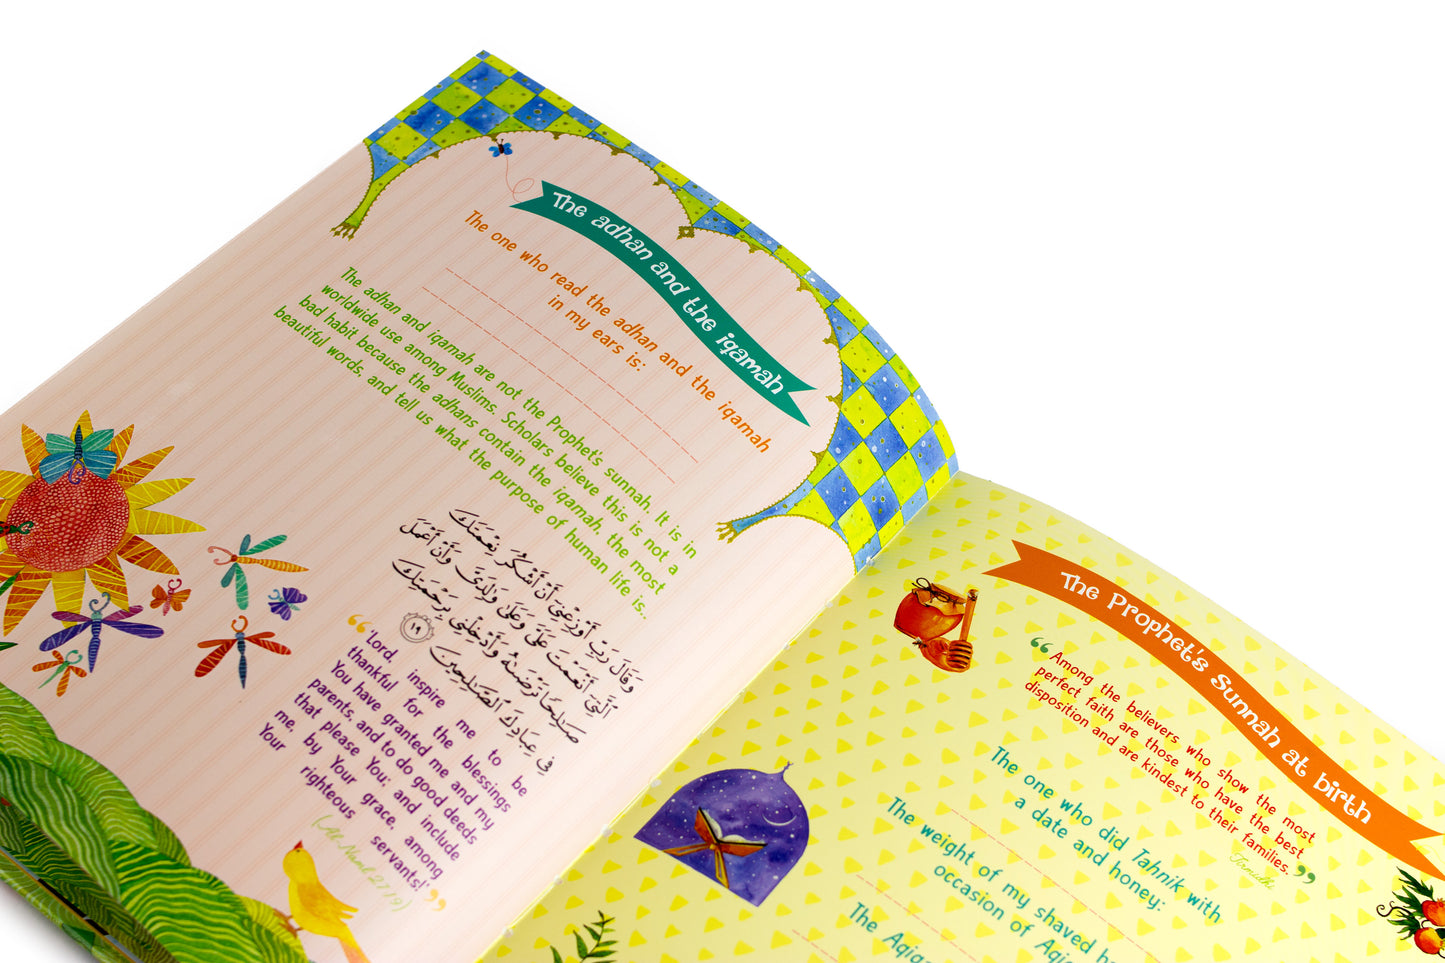 The adhan and the iqamah
The one who read the adhan and the iqamah
in my ears is:
The adhan and iqamah are not the Prophet's sunnah. It is in
worldwide use among Muslims. Scholars believe this is not a
bad habit because the adhans contain the iqamah, the most
beautiful words, and tell us what the purpose of human life is..
وَقَالَ رَبِّ أَوْزِعْنِىٓ أَنْ أَشْكُرَ نِعْمَتَكَ
ٱلَّتِىٓ أَنْعَمْتَ عَلَىَّ وَعَلَىٰ وَٰلِدَىَّ وَأَنْ أَعْمَلَ
صَٰلِحًا تَرْضَىٰهُ وَأَدْخِلْنِى بِرَحْمَتِكَ
فِى عِبَادِكَ ٱلصَّٰلِحِينَ ١٩
“'Lord, inspire me to be
thankful for the blessings
You have granted me and my
parents, and to do good deeds
that please You; and include
me, by Your grace, among
Your righteous servants!'”
(An-Naml 27/19)
The Prophet's Sunnah at birth
“Among the believers who show the most
perfect faith are those who have the best
disposition and are kindest to their families.”
Tirmidhi
The one who did Tahnik with
a date and honey:
The weight of my shaved
occasion of
The